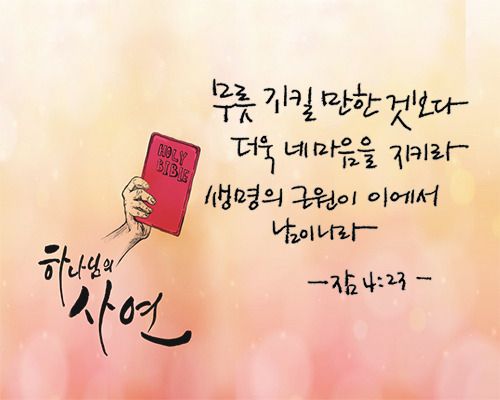 무릇 지킬 만한 것보다
더욱 네 마음을 지키라
생명의 근원이 이에서
남이니라
- 잠 4:23 -
HOLY
BIBLE
하나님의
사연